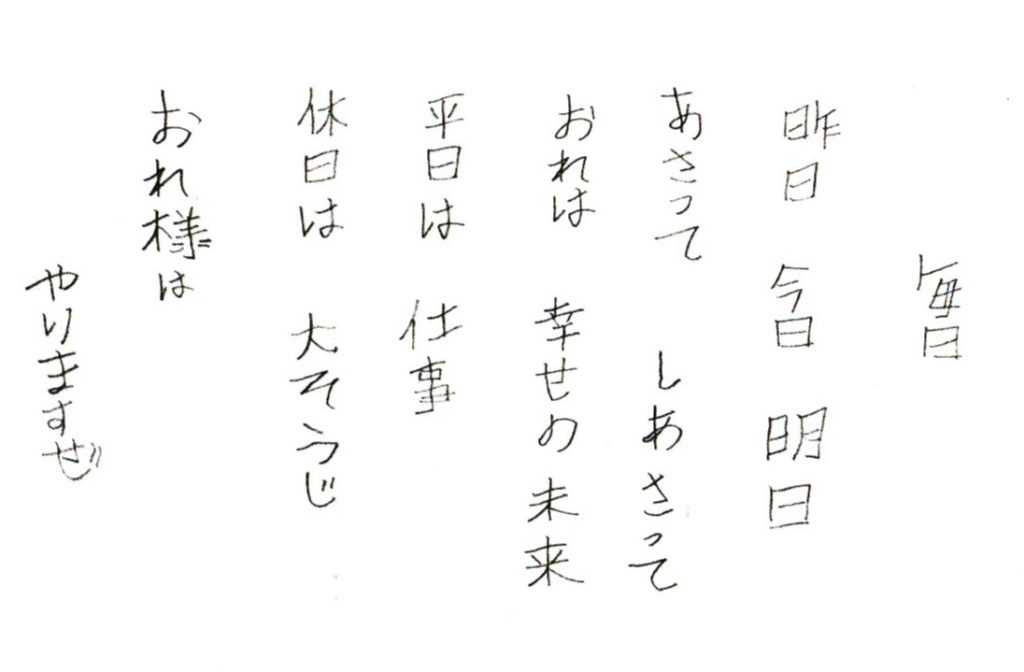 毎日
昨日 今日 明日
あさって しあさって
おれは 幸せの未来
平日は 仕事
休日は 大そうじ
おれ様は
やりますぜ